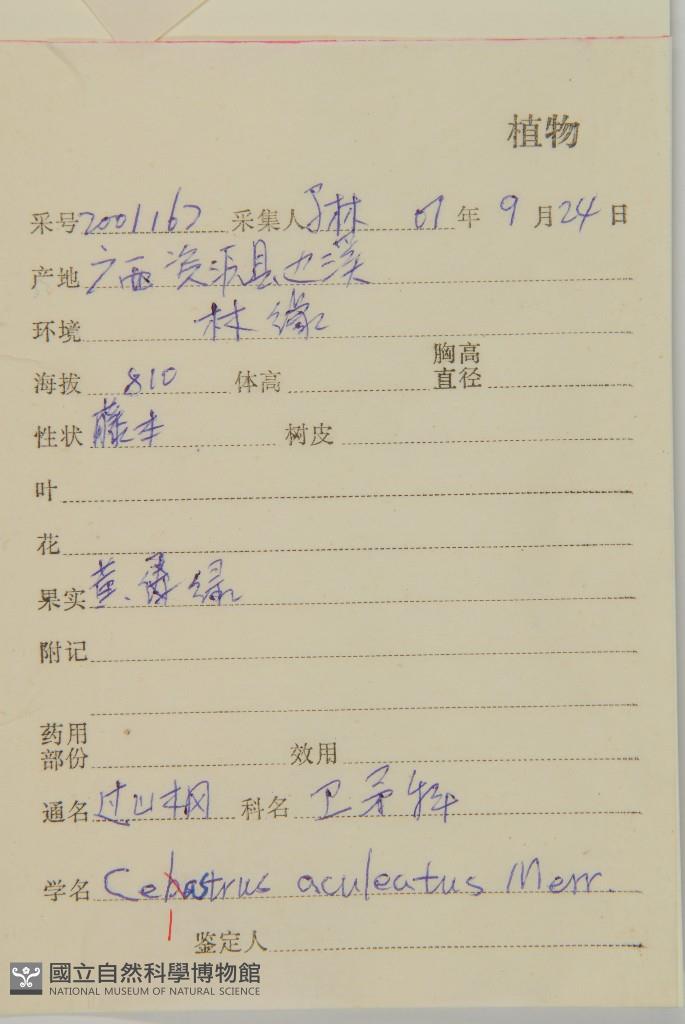 植物
采号 2001167 采集人 林 01 年 9 月 24 日
产地 广西资源县边溪
环境 林缘
海拔 810 体高 胸高直径
性状 藤本 树皮
叶
花
果实 黄绿
附记
药用部份 效用
通名 过山枫 科名 卫矛科
学名 Cebastrus aculeatus Merr.
l
鉴定人
國立自然科學博物館
NATIONAL MUSEUM OF NATURAL SCIENCE